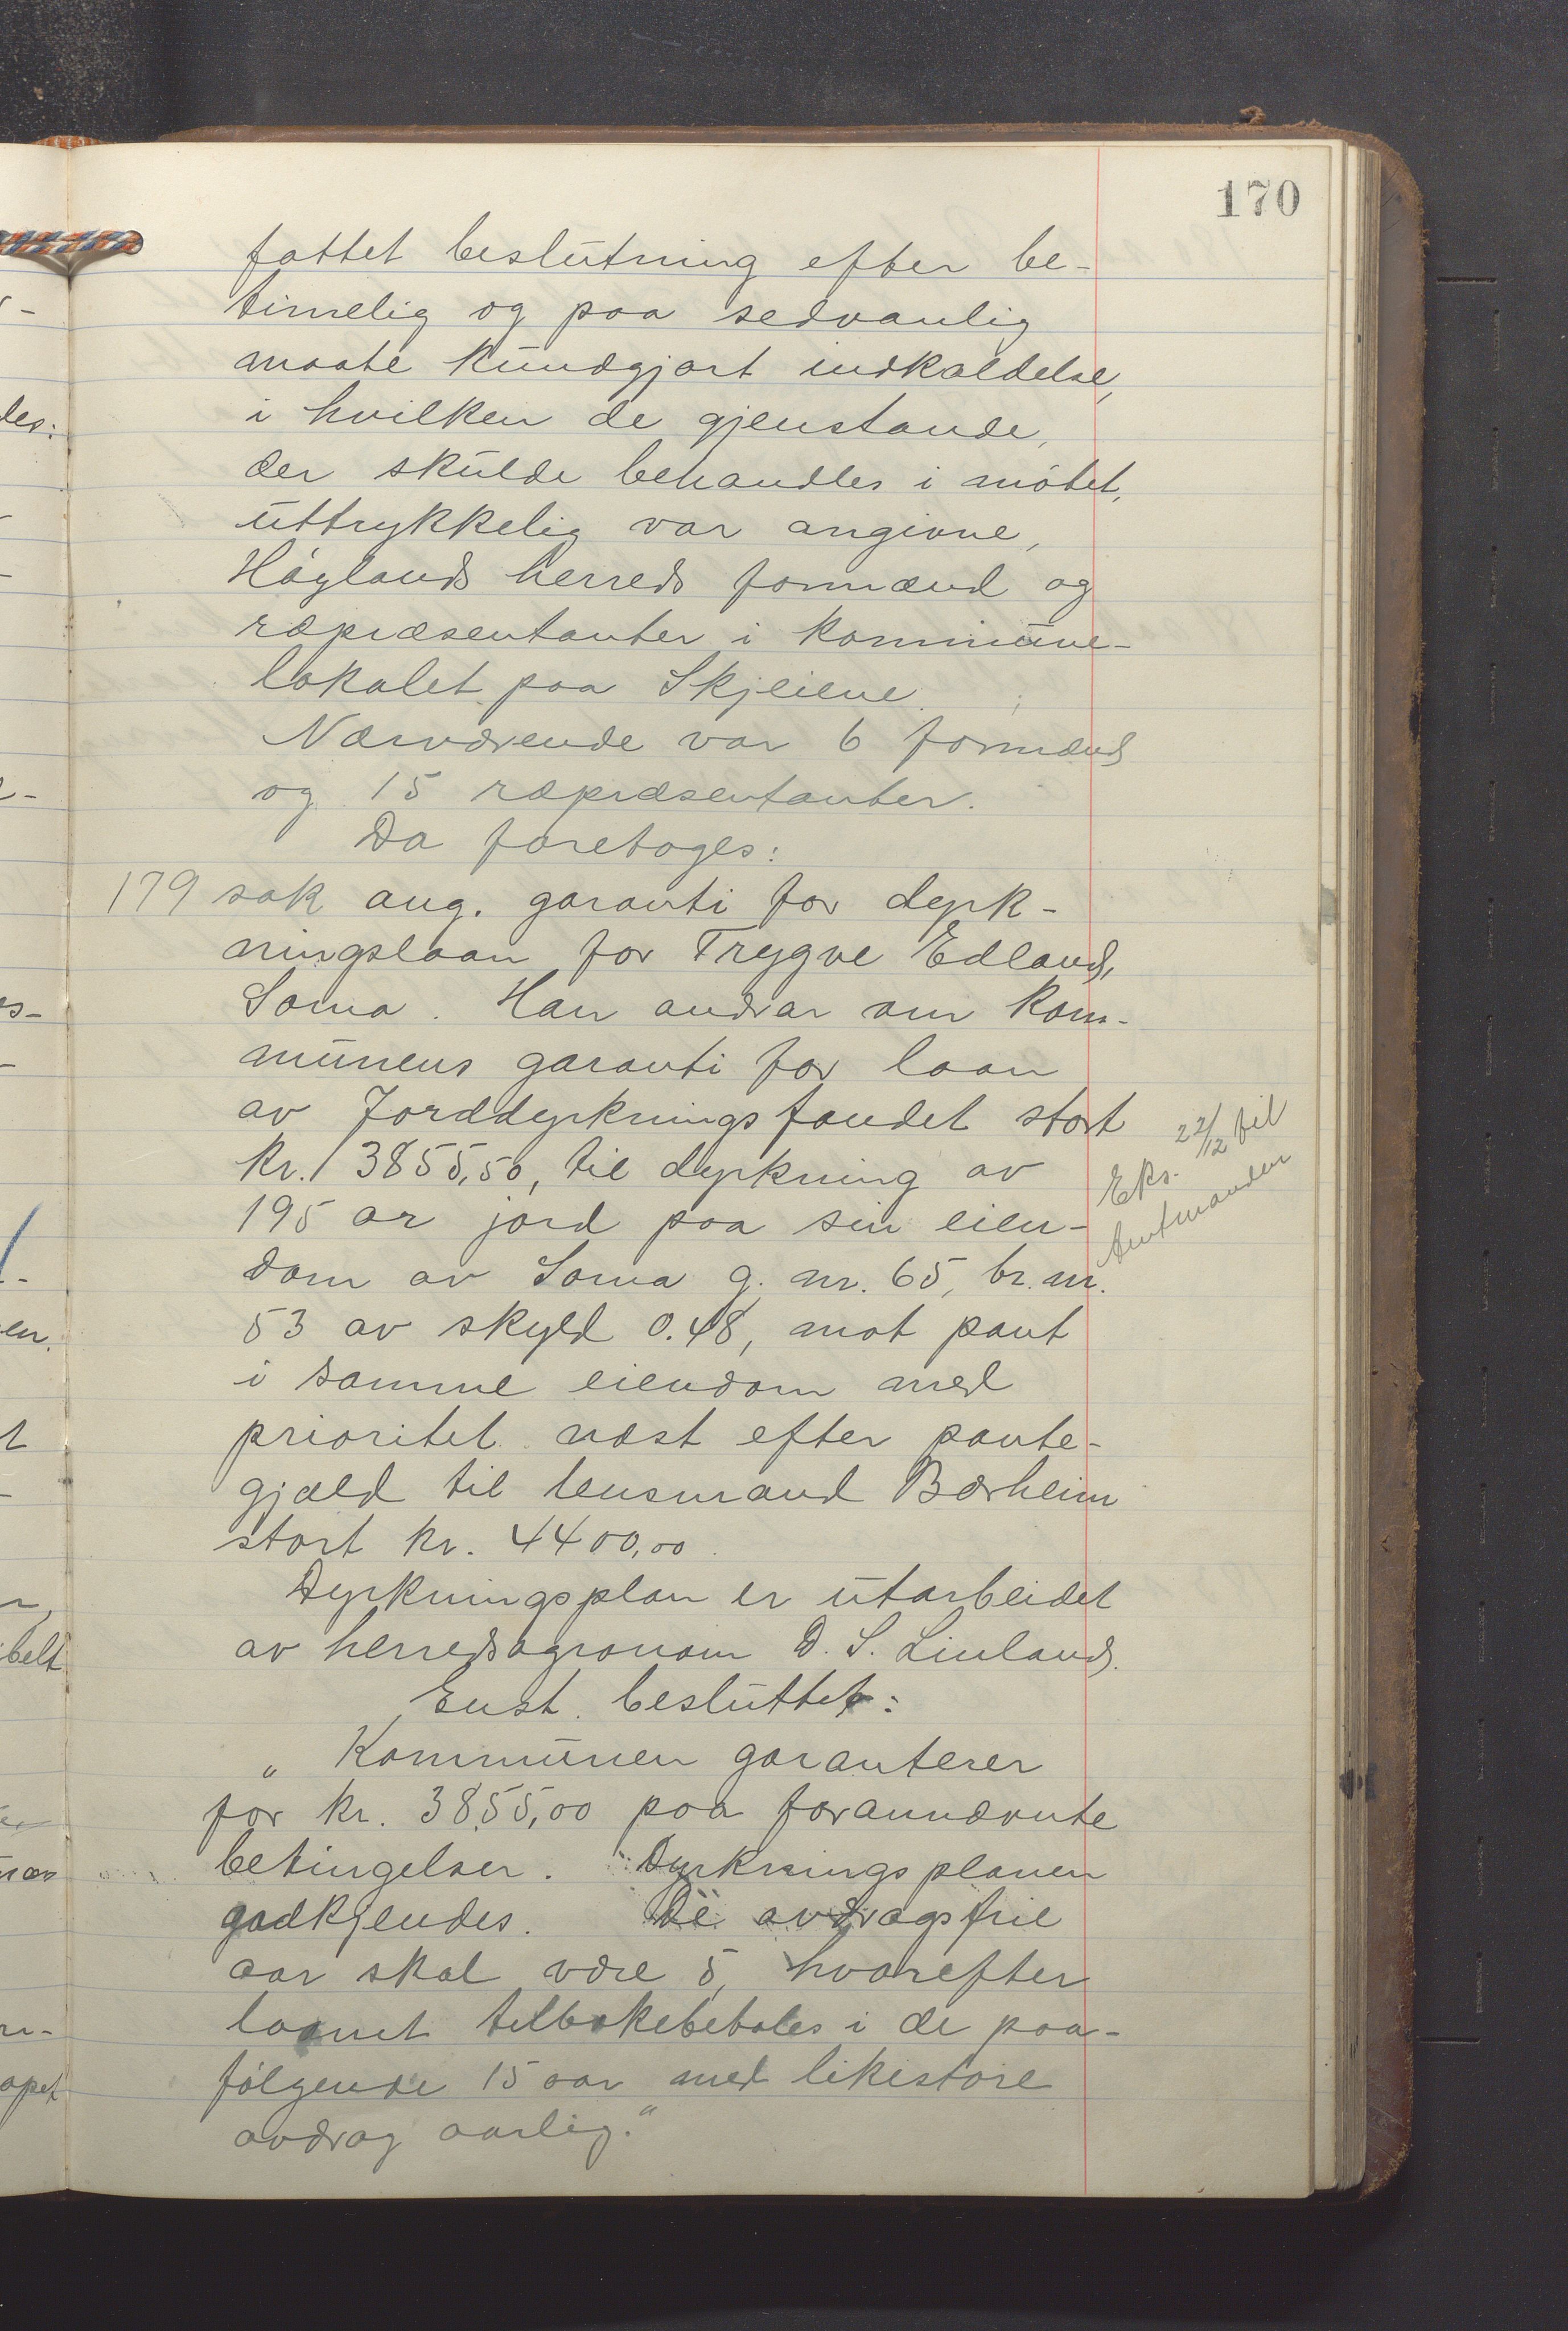 170
fattet beslutning efter be-
timelig og paa sedvanlig
maate kundgjort indkaldelse,
i hvilken de gjenstande,
der skulde behandles i møtet,
uttrykkelig var angivne,
Høylands herreds formænd og
repræsentanter i kommune-
lokalet paa Skjeiene.
Nærværende var 6 formænd
og 15 repræsentanter.
Da foretoges:
179 sak ang. garanti for dyrk-
ningslaan for Trygve Edland,
Soma. Han andrar om kom-
munens garanti for laan
av Jorddyrkningsfondet stort
kr. 3855,50, til dyrkning av
195 ar jord paa sin eien-
dom av Soma g. nr. 65, br. nr.
53 av skyld 0.48, mot pant
i samme eiendom med
prioritet næst efter pante-
gjæld til lensmand Bærheim
stort kr. 4400,00.
Eks. 22/12 til
Amtmanden
Dyrkningsplan er utarbeidet
av herredsagronom D. S. Linland.
Enst. besluttet:
„ Kommunen garanterer
for kr. 3855,00 paa forannævnte
betingelser. Dyrkningsplanen
godkjendes. De avdragsfrie
aar skal være 5, hvorefter
laanet tilbakebetales i de paa-
følgende 15 aar med likestore
avdrag aarlig.“